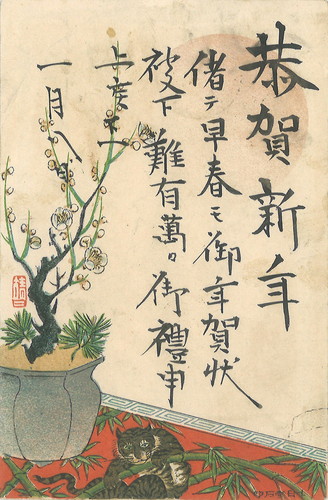 恭賀新年
偖テ早春モ御年賀状
被下難有萬々御禮申
上度候
一月八日